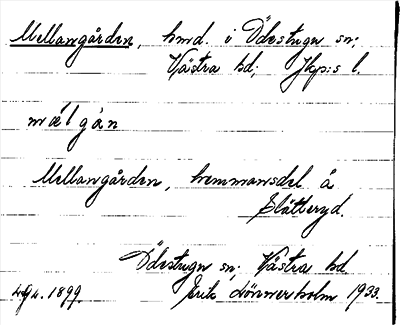 Mellangården, hmd. i Ödestugu sn;
Västra hd; Jkp:s l.
mǽlgȧn
Mellangården, hemmansdel å
Slätteryd.
Ödestugu sn; Västra hd
1899. Erik Lönnerholm 1933.